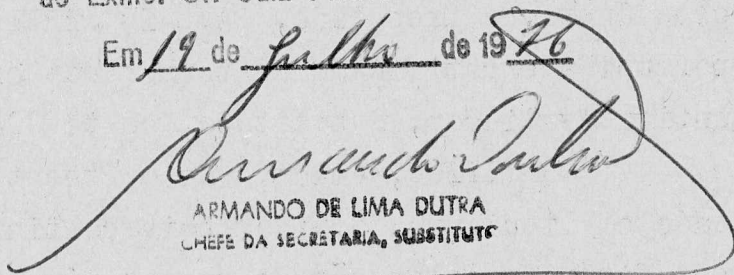 ao Exmo. Sr.
Em 19 de Julho de 1976
Armando Dutra
ARMANDO DE LIMA DUTRA
CHEFE DA SECRETARIA, SUBSTITUTO